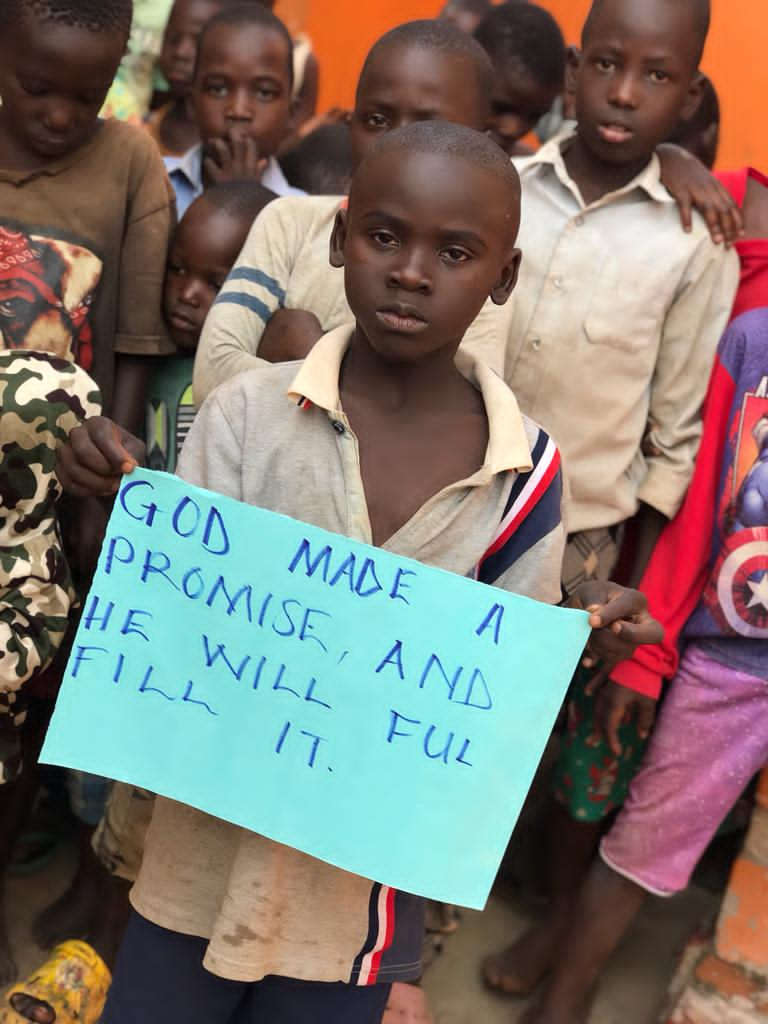 GOD MADE A
PROMISE, AND
HE WILL FUL
FILL IT.